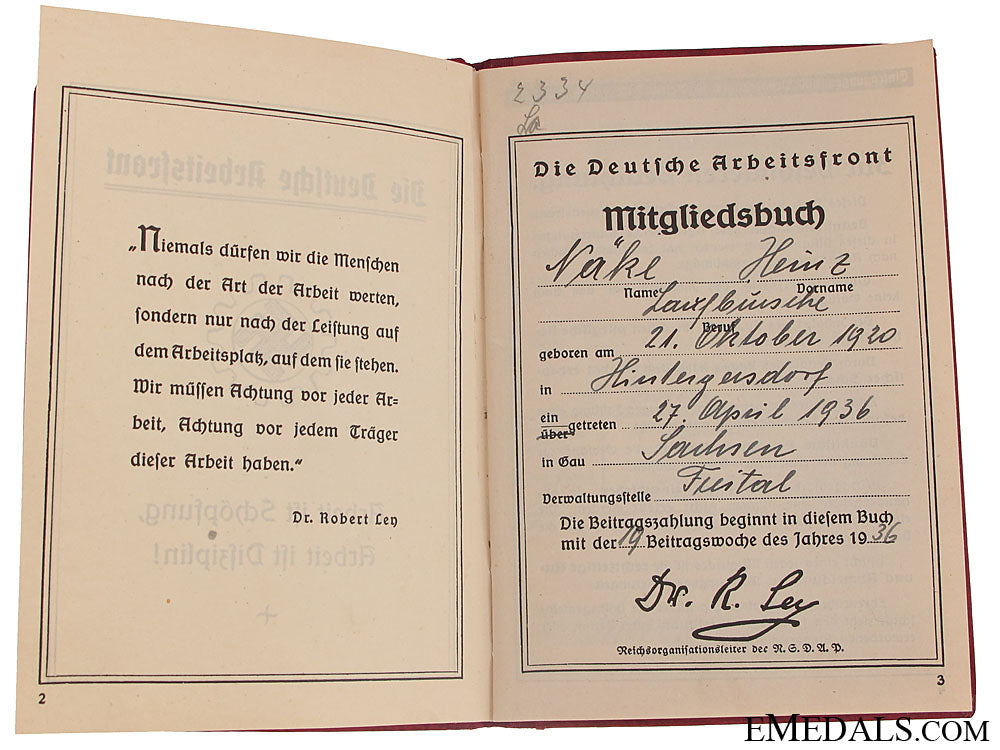 „Niemals dürfen wir die Menschen
nach der Art der Arbeit werten,
sondern nur nach der Leistung auf
dem Arbeitsplatz, auf dem sie stehen.
Wir müssen Achtung vor jeder Ar=
beit, Achtung vor jedem Träger
dieser Arbeit haben.“
Dr. Robert Ley
2
2334
Die Deutsche Arbeitsfront
Mitgliedsbuch
Näke Heinz
Name Vorname
Laufbursche
Beruf
geboren am 21. Oktober 1920
in Hintergersdorf
ein
über getreten 27. April 1936
in Gau Sachsen
Verwaltungsstelle Freital
Die Beitragszahlung beginnt in diesem Buch
mit der 19 Beitragswoche des Jahres 1936
Dr. R. Ley
Reichsorganisationsleiter der N. S. D. A. P.
3
EMEDALS.COM